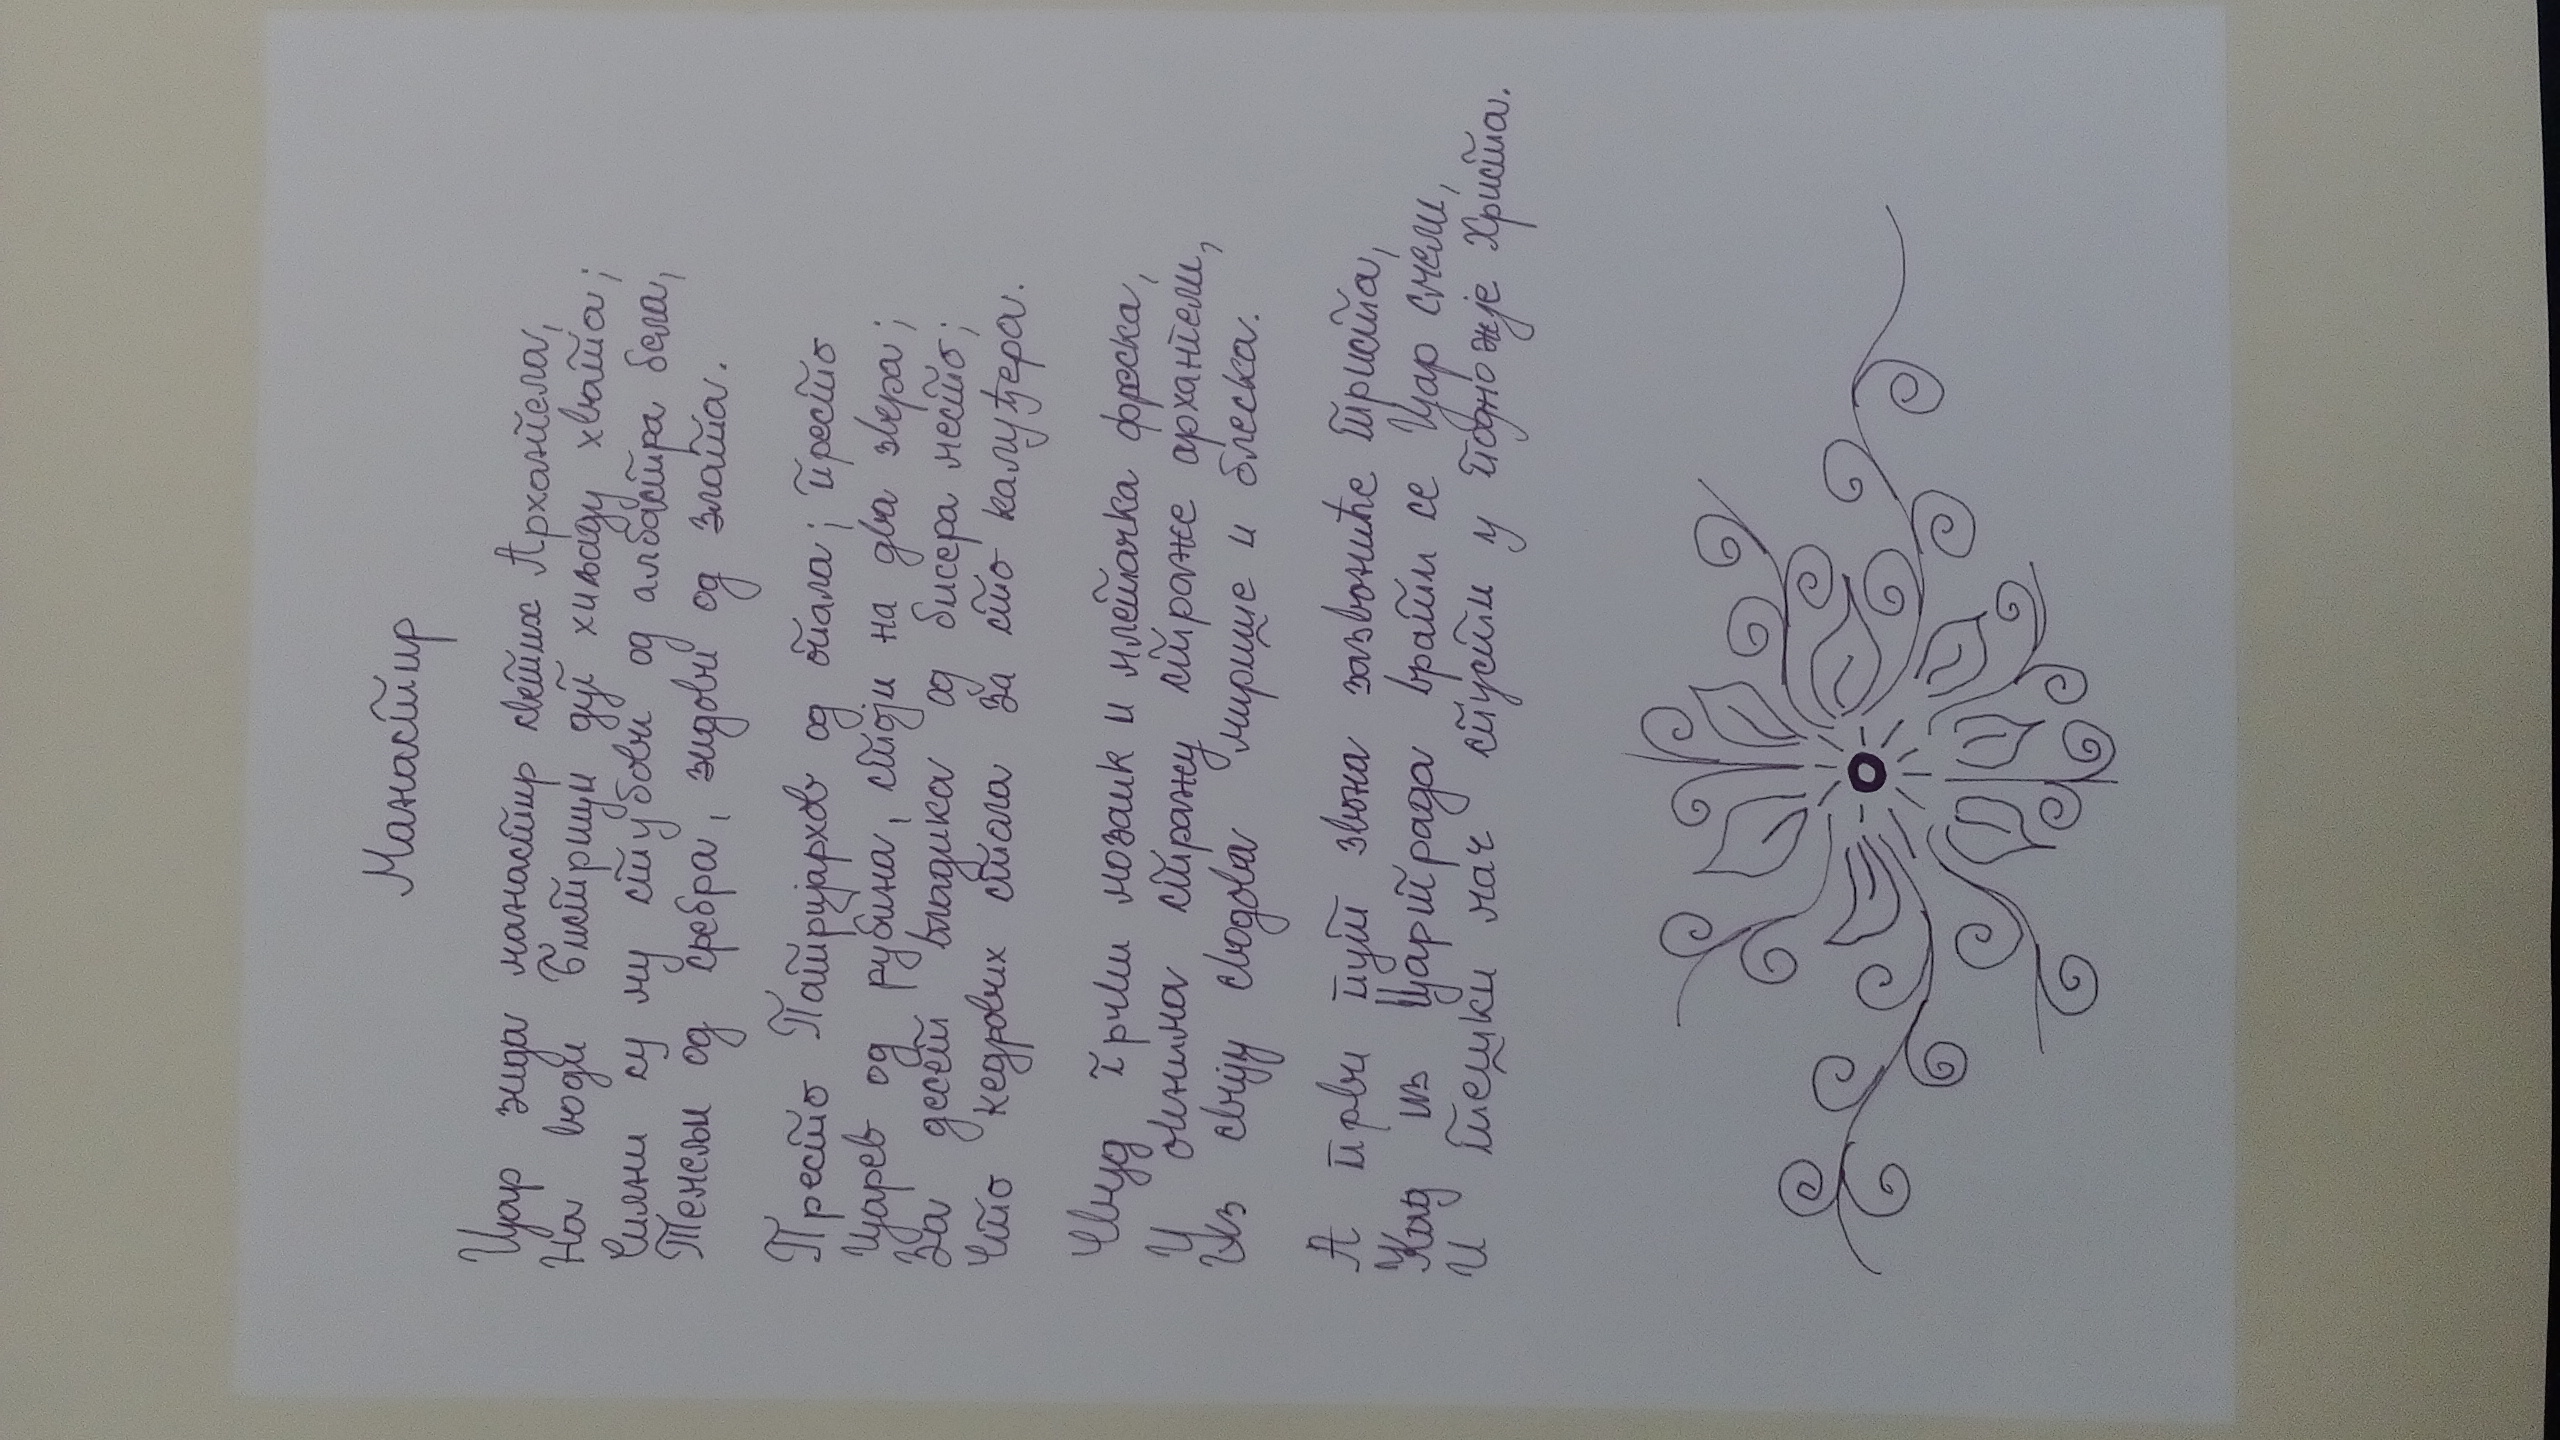 Манастир
Цар зида манастир светих Арханђела,
На води Бистрици дуг хиљаду хвата;
Сјајни су му стубови од албастра бела,
Темељи од сребра, зидови од злата.
Престо Патријархов од опала; престо
Царев од рубина, стоји на два звера;
За десет владика од бисера место;
Сто кедрових стола за сто калуђера.
Свуд грчки мозаик и млетачка фреска,
У очнима стражу страже арханђели,
Уз свију сводова мирише и блеска.
А први пут звона зазвониће триста,
Кад из Цариграда врати се Цар смели,
И тешки мач спусти у подножје Христа.